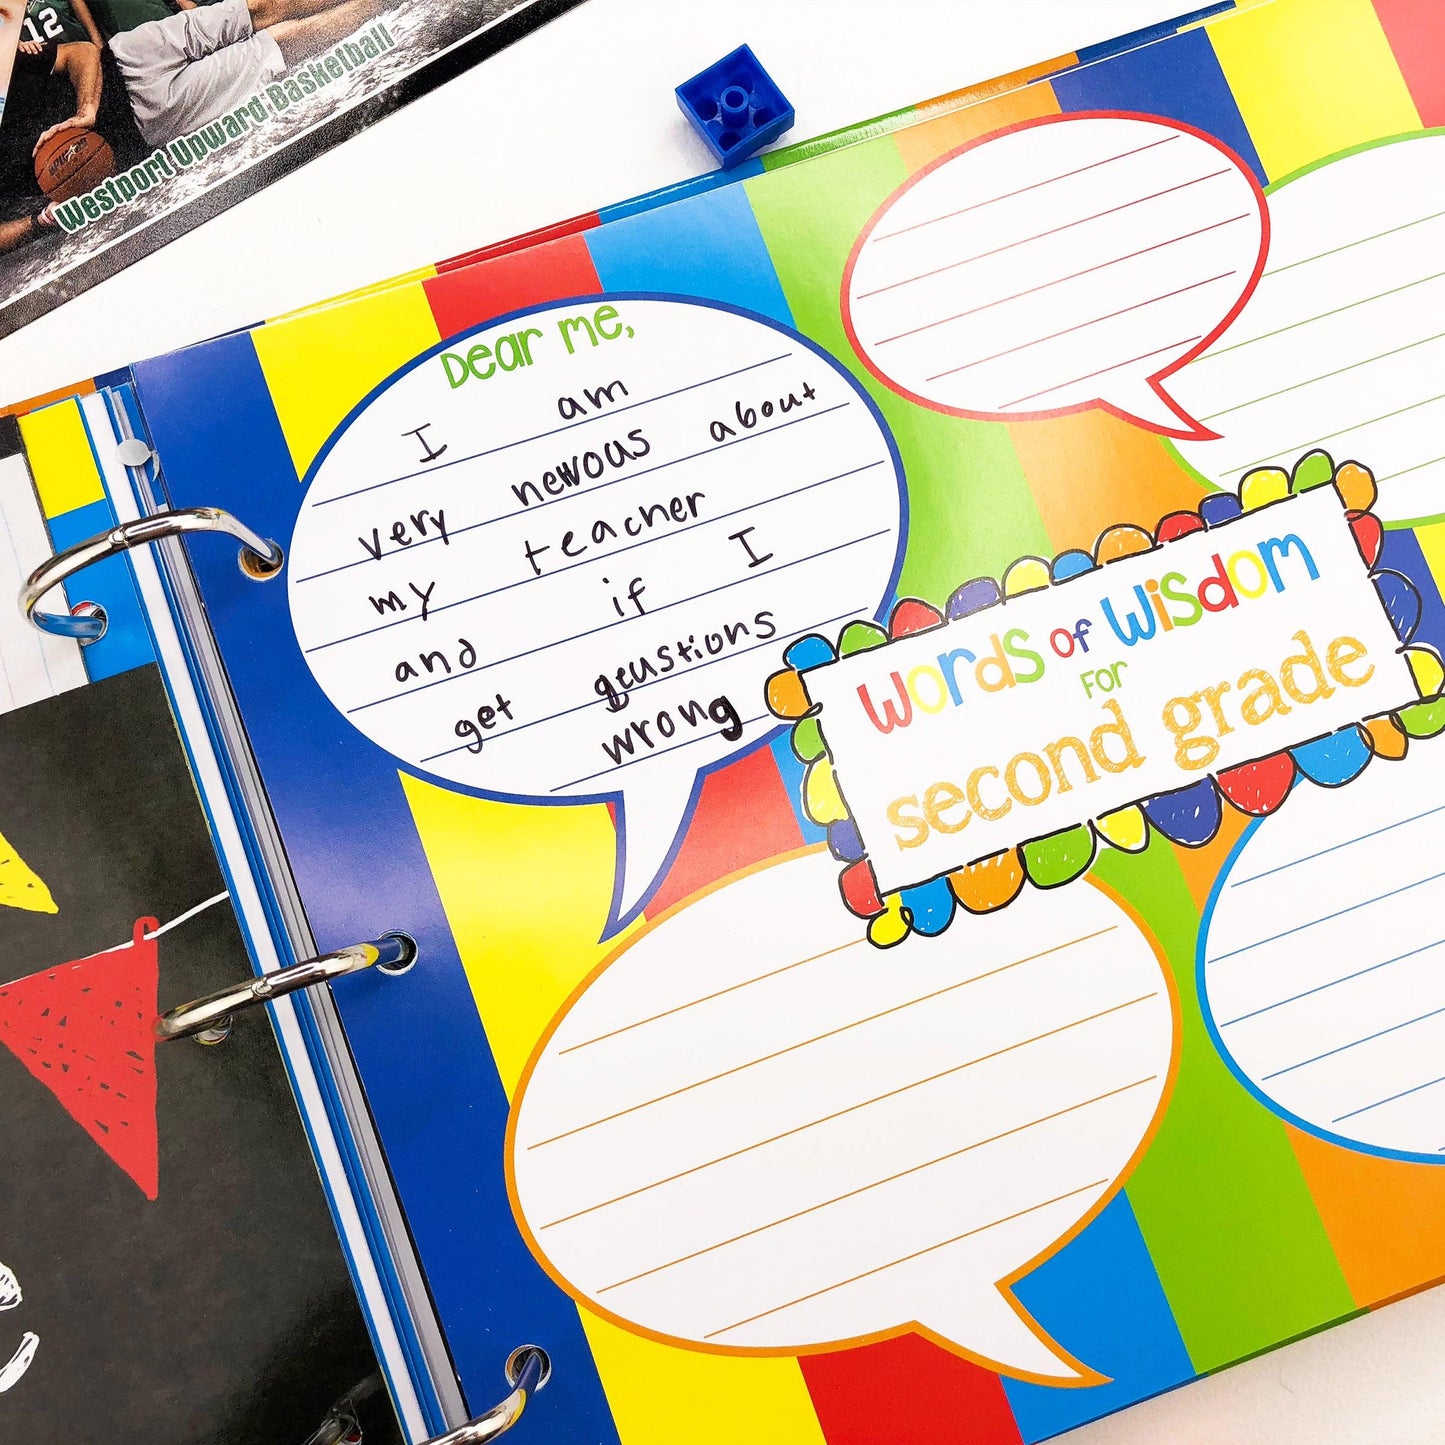 12
Westport Upward Basketball
Dear me,
I am
very nervous about
my teacher
and if I
get geustions
wrong
Words of Wisdom
for
second grade